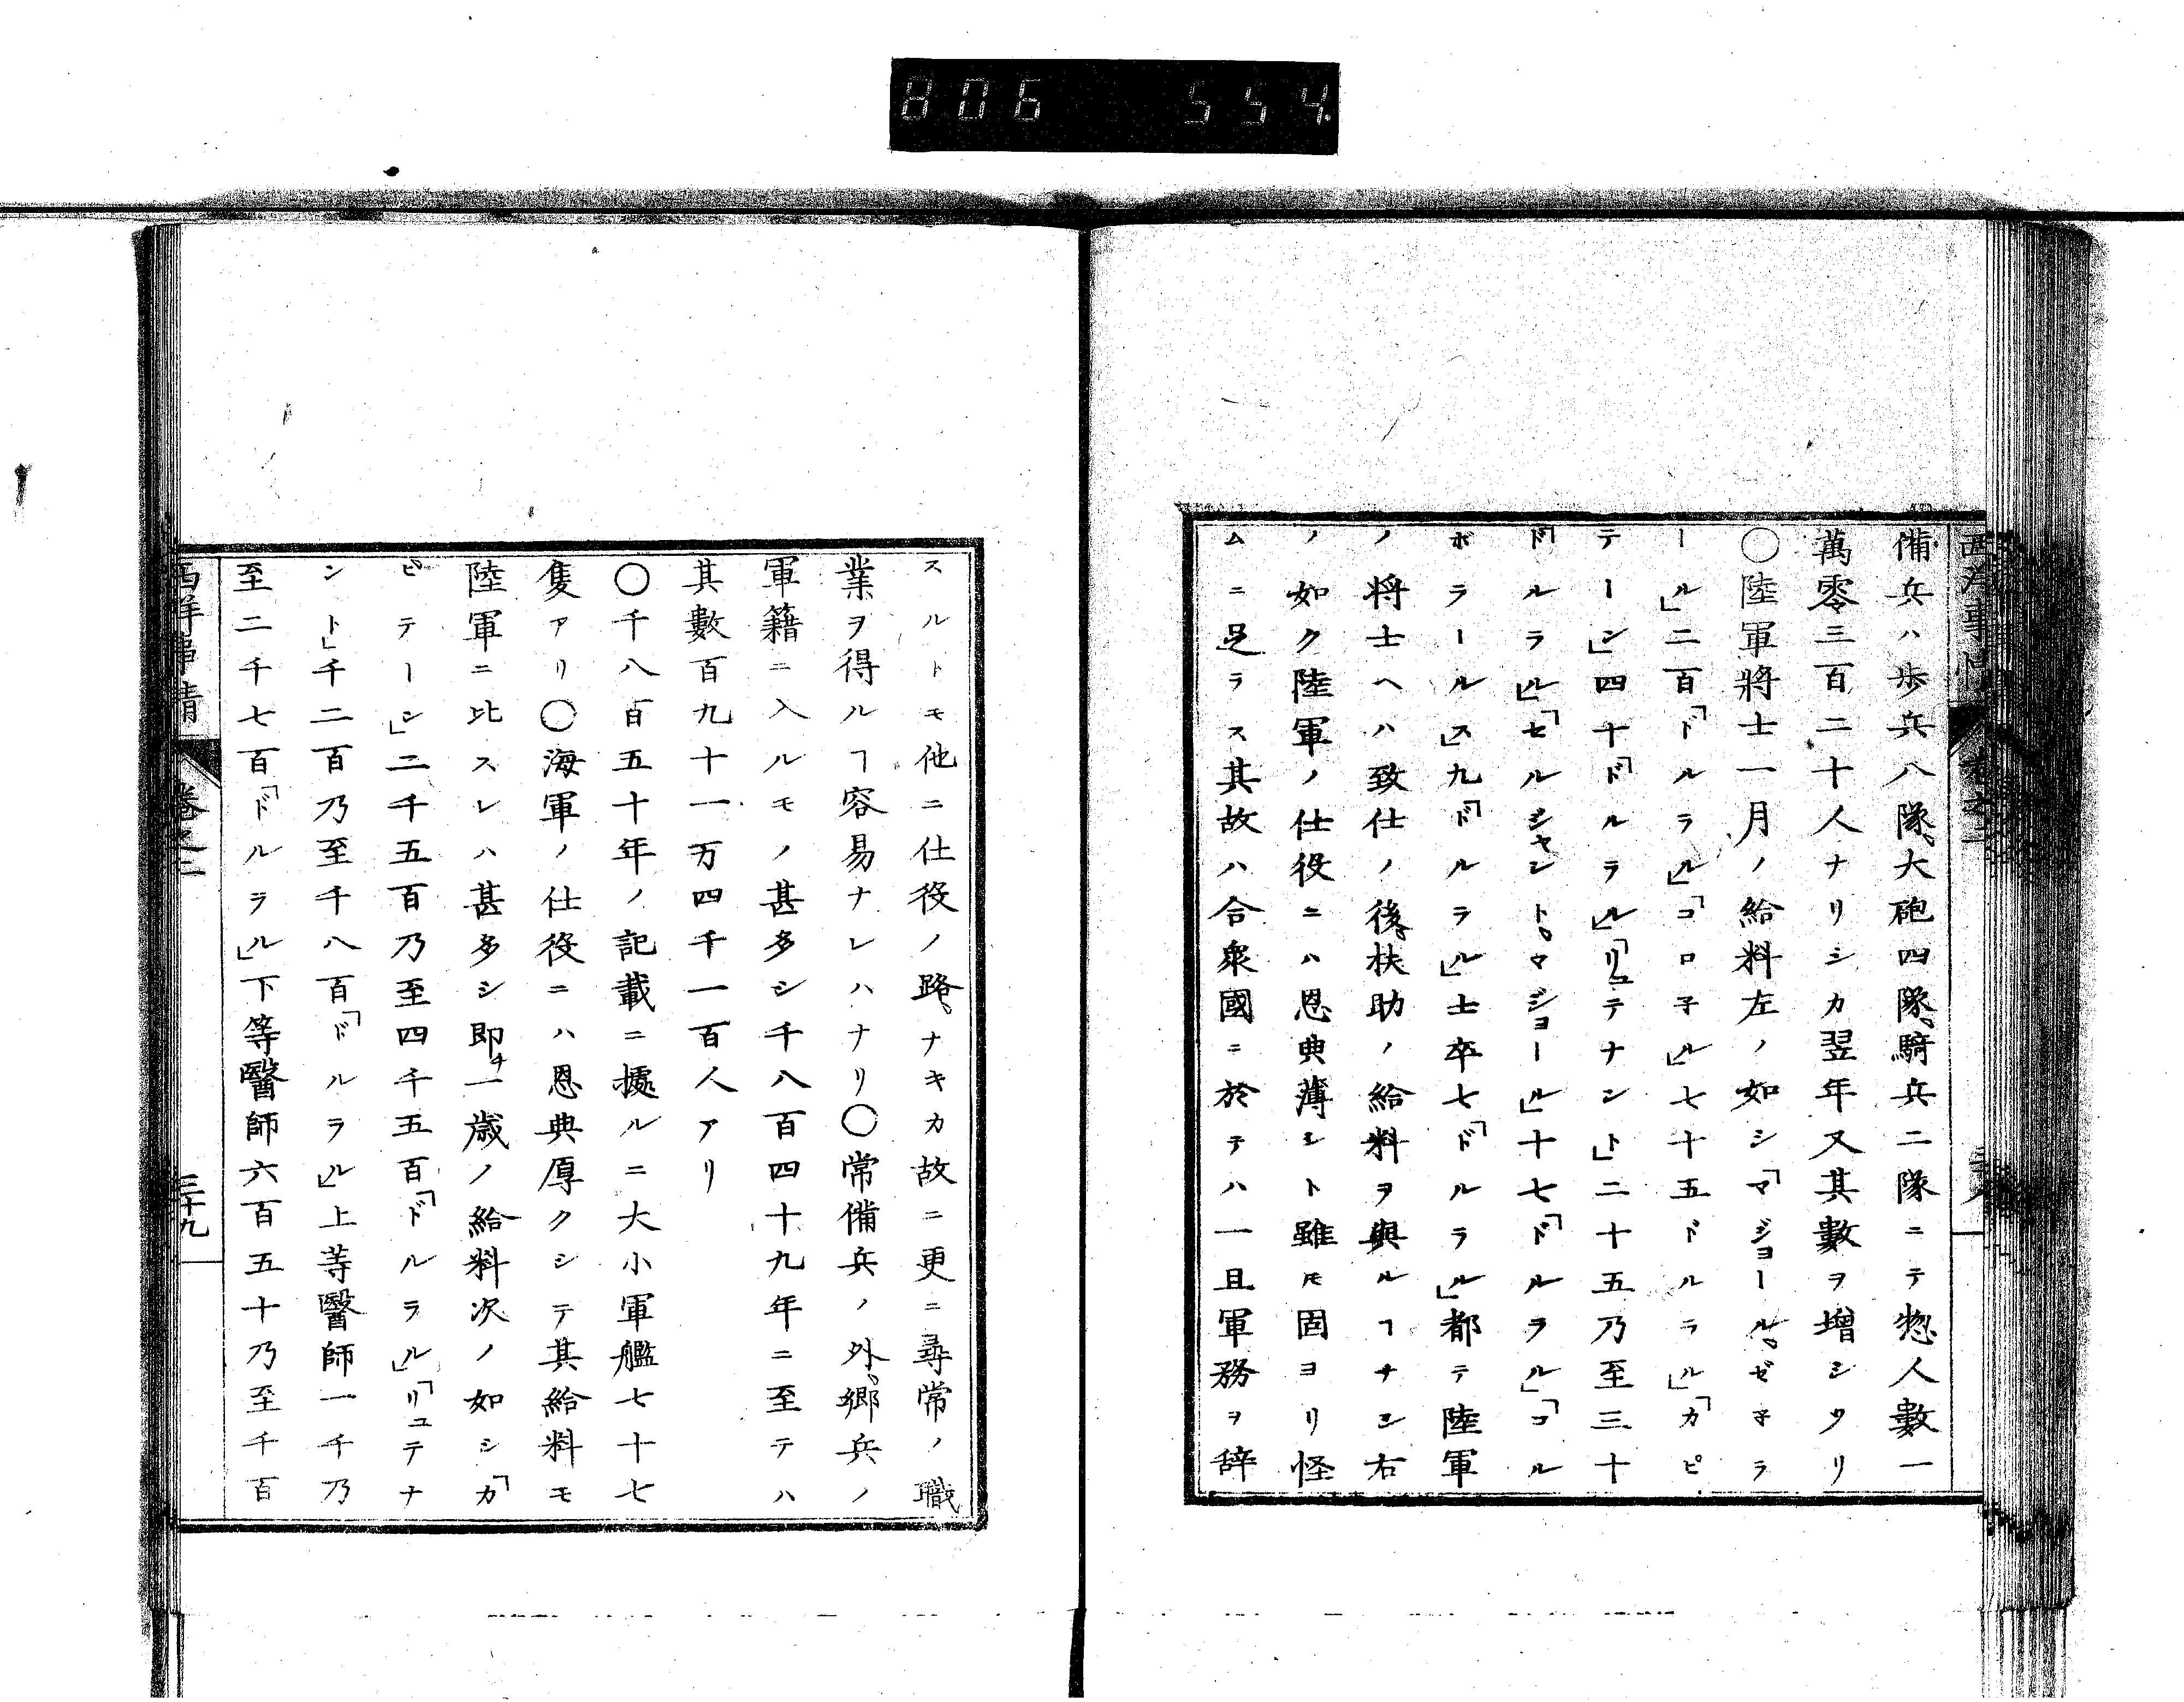 806 554.
備兵ハ歩兵八隊、大砲四隊、騎兵二隊ニテ惣人數一
萬零三百二十人ナリシカ翌年又其數ヲ增シタリ
〇陸軍將士一月ノ給料左ノ如シ「マジョール、ゼ子ラ
ール」二百「ドルラル」「コロ子ル」七十五ドルラル」「カピ
テーン」四十「ドルラル」「リュテナント」二十五乃至三十
「ドルラル」「セルジャント、マジョール」十七「ドルラル」「コル
ボラールス」九「ドルラル」士卒七「ドルラル」都テ陸軍
ノ将士ヘハ致仕ノ後、扶助ノ給料ヲ與ルヿナシ右
ノ如ク陸軍ノ仕役ニハ恩典薄シト雖𪜈固ヨリ怪
ムニ足ラス其故ハ合衆國ニ於テハ一旦軍務ヲ辞
スルトモ他ニ仕役ノ路、ナキカ故ニ更ニ尋常ノ職
業ヲ得ルヿ容易ナレハナリ〇常備兵ノ外、郷兵ノ
軍籍ニ入ルモノ甚多シ千八百四十九年ニ至テハ
其數百九十一万四千一百人アリ
〇千八百五十年ノ記載ニ據ルニ大小軍艦七十七
隻アリ〇海軍ノ仕役ニハ恩典厚クシテ其給料モ
陸軍ニ比スレハ甚多シ即チ一歳ノ給料次ノ如シ「カ
ピテーン」二千五百乃至四千五百「ドルラル」「リュテナ
ント」千二百乃至千八百「ドルラル」上等醫師一千乃
至二千七百「ドルラル」下等醫師六百五十乃至千百
西洋事情 卷之二 三十九